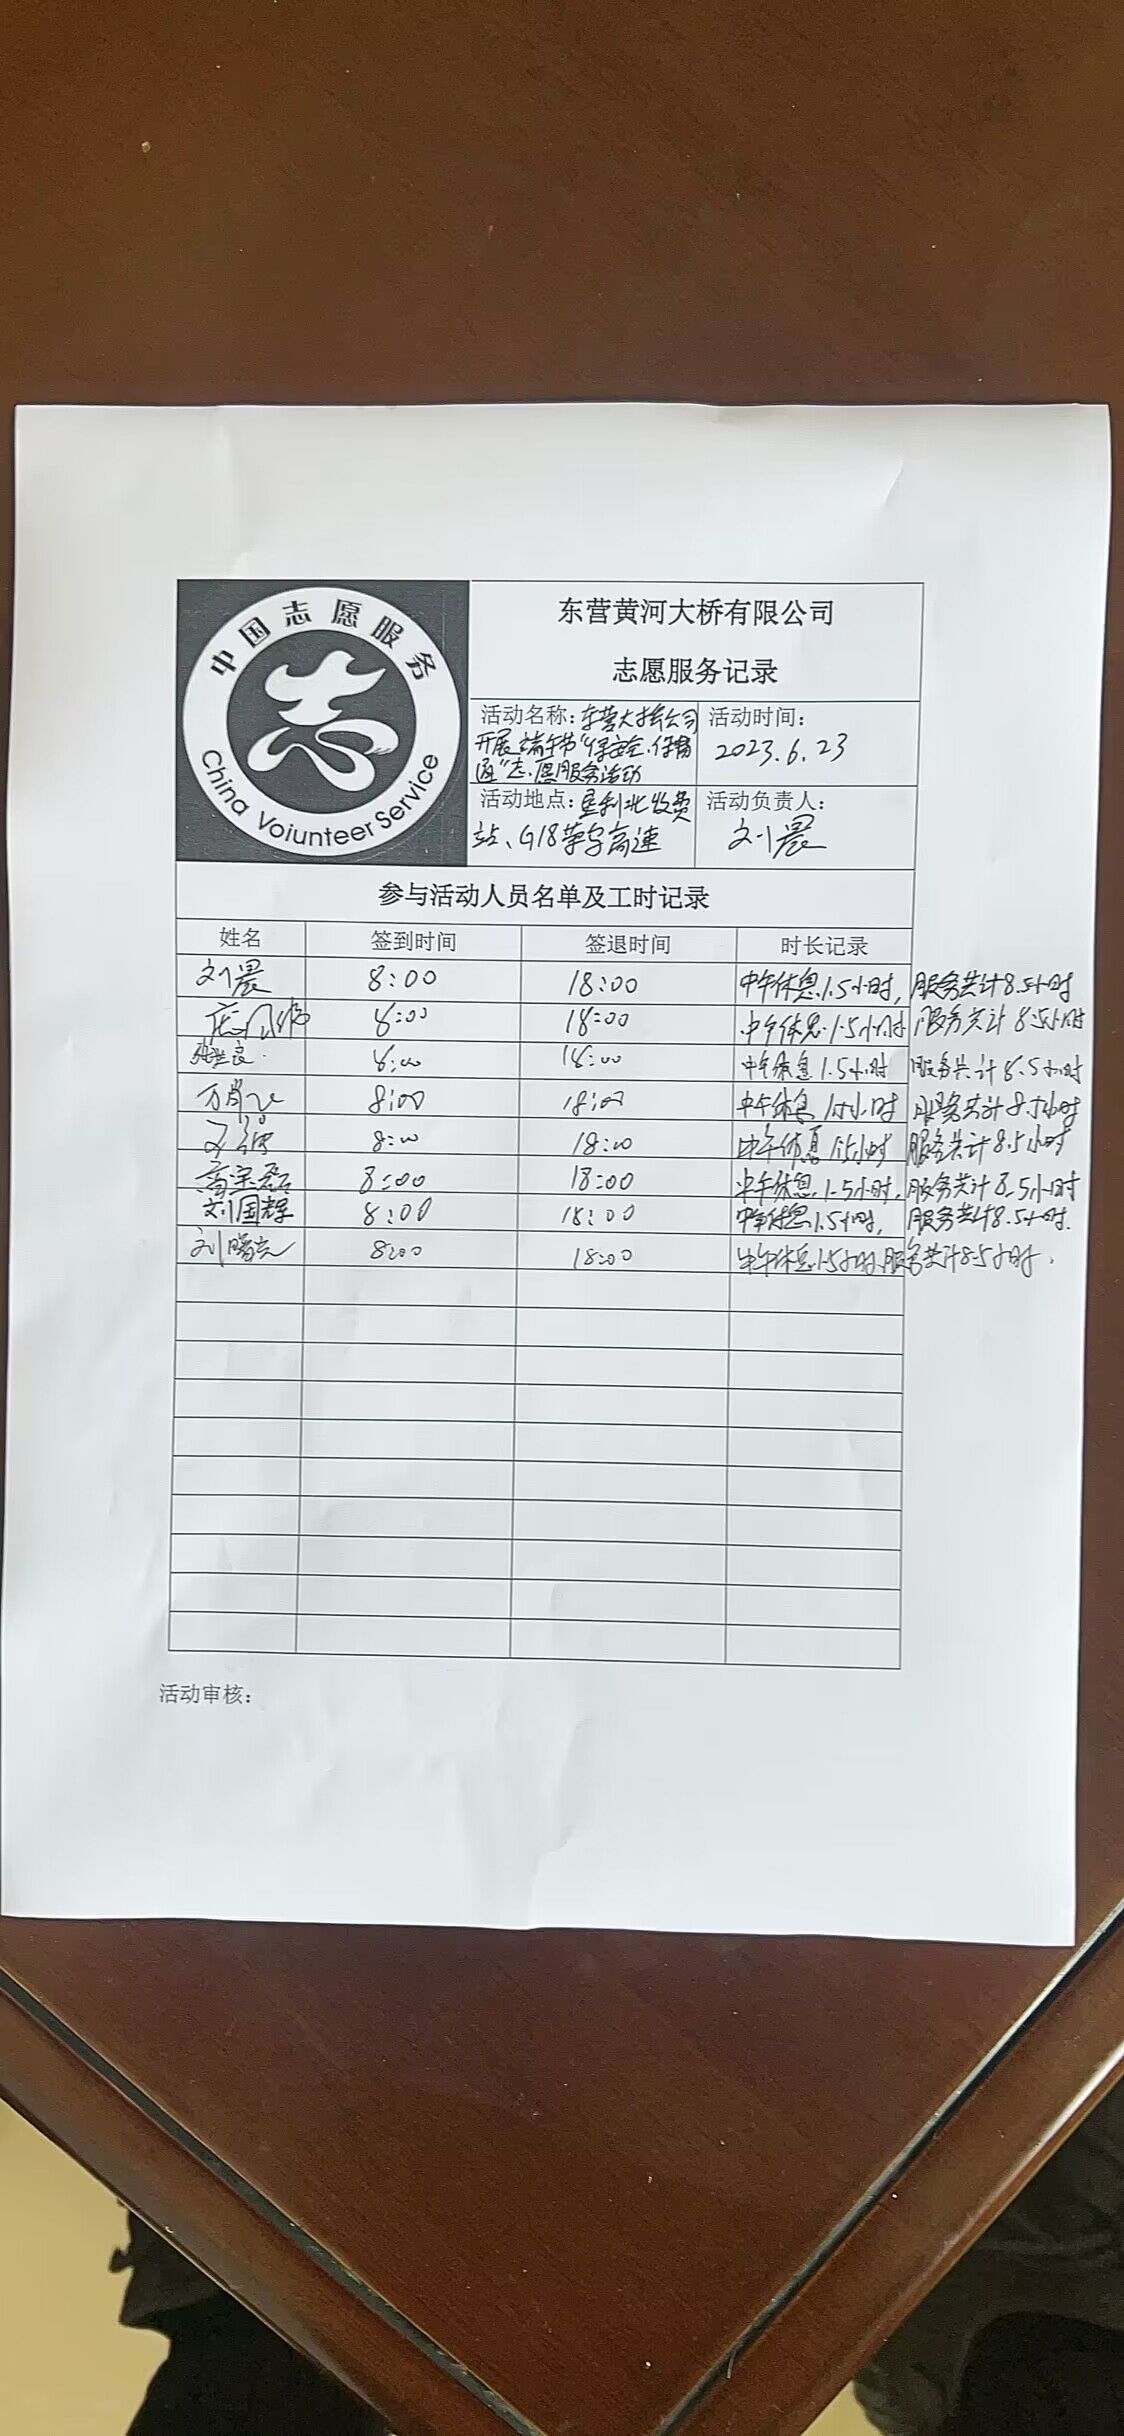 中国志愿服务
China Voiunteer Service
东营黄河大桥有限公司
志愿服务记录
活动名称：东营大桥公司
开展端午节“保安全、保畅
通”志愿服务活动
活动时间：
2023.6.23
活动地点：垦利北收费
站、G18荣乌高速
活动负责人：
刘晨
参与活动人员名单及工时记录
姓名 签到时间 签退时间 时长记录
刘晨 8:00 18:00 中午休息1.5小时，服务共计8.5小时
8:00 18:00 中午休息1.5小时 服务共计8.5小时
8:00 18:00 中午休息1.5小时 服务共计8.5小时
8:00 18:00 中午休息1.5小时 服务共计8.5小时
8:00 18:00 中午休息1.5小时 服务共计8.5小时
8:00 18:00 中午休息1.5小时，服务共计8.5小时
刘国辉 8:00 18:00 中午休息1.5小时，服务共计8.5小时.
刘曙光 8:00 18:00 中午休息1.5小时.服务共计8.5小时.
活动审核：